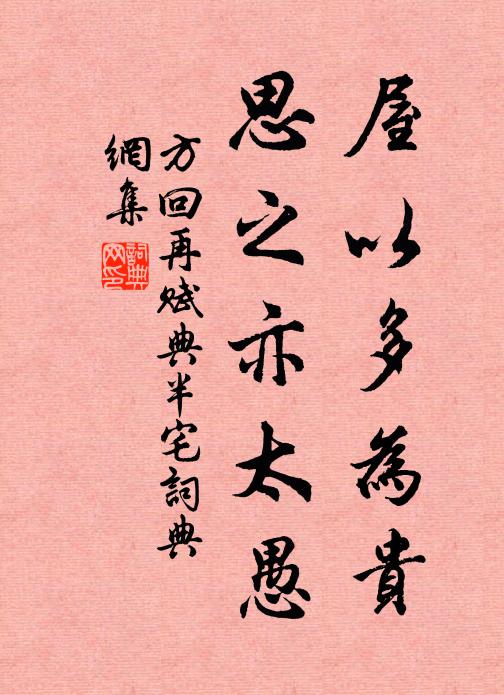 屋以多為貴
思之亦太愚
方回再賦典半宅詞典
網集
詞典
網印